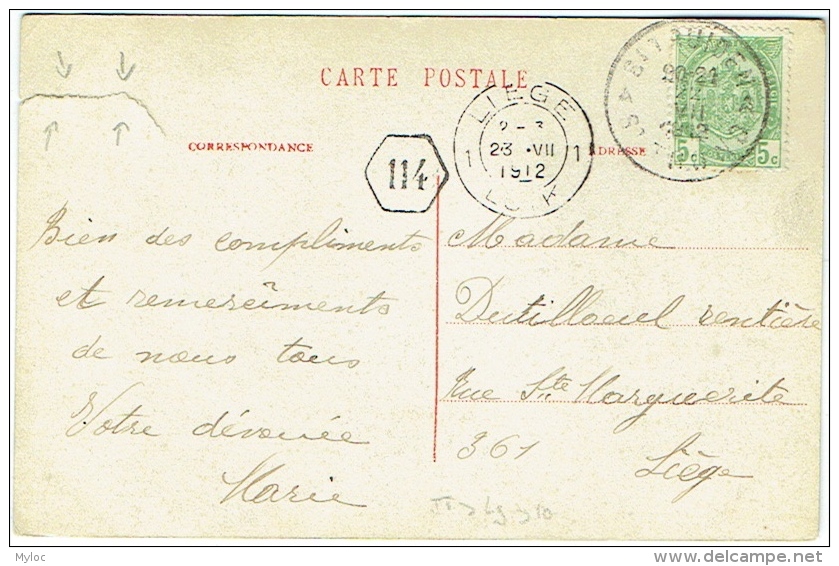 CARTE POSTALE
CORRESPONDANCE
ADRESSE
114
LIEGE
2-3
1 23 · VII 1
1912
LUIK
20-21
1912
5c 5c
Bien des compliments
et remerciments
de nous tous
Votre dévouée
Marie
Madame
rentière
Rue Ste Marguerite
361
Liège
Myloc
delcampe.net